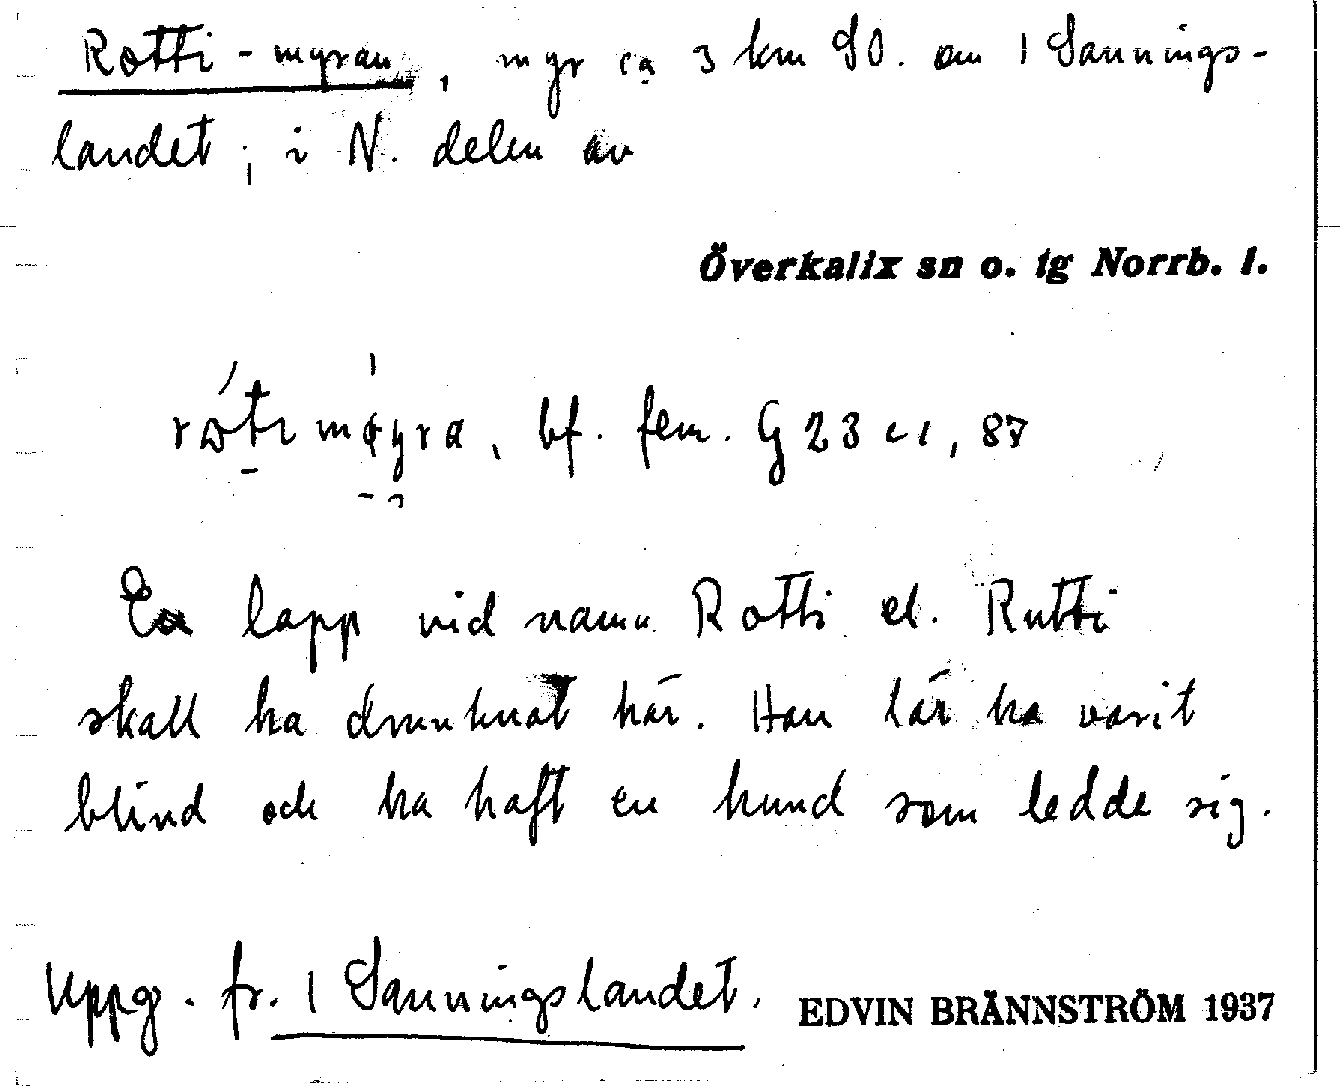 Rotti-myran, myr ca 3 km SO. om 1 Sannings-
landet; i N. delen av
Överkalix sn o. tg Norrb. l.
bf. fem. G 23 c1, 87
En lapp vid namn Rotti el. Rutti
skall ha drunknat här. Han lär ha varit
blind och ha haft en hund som ledde sig.
Uppg. fr. 1 Sanningslandet.
EDVIN BRÄNNSTRÖM 1937